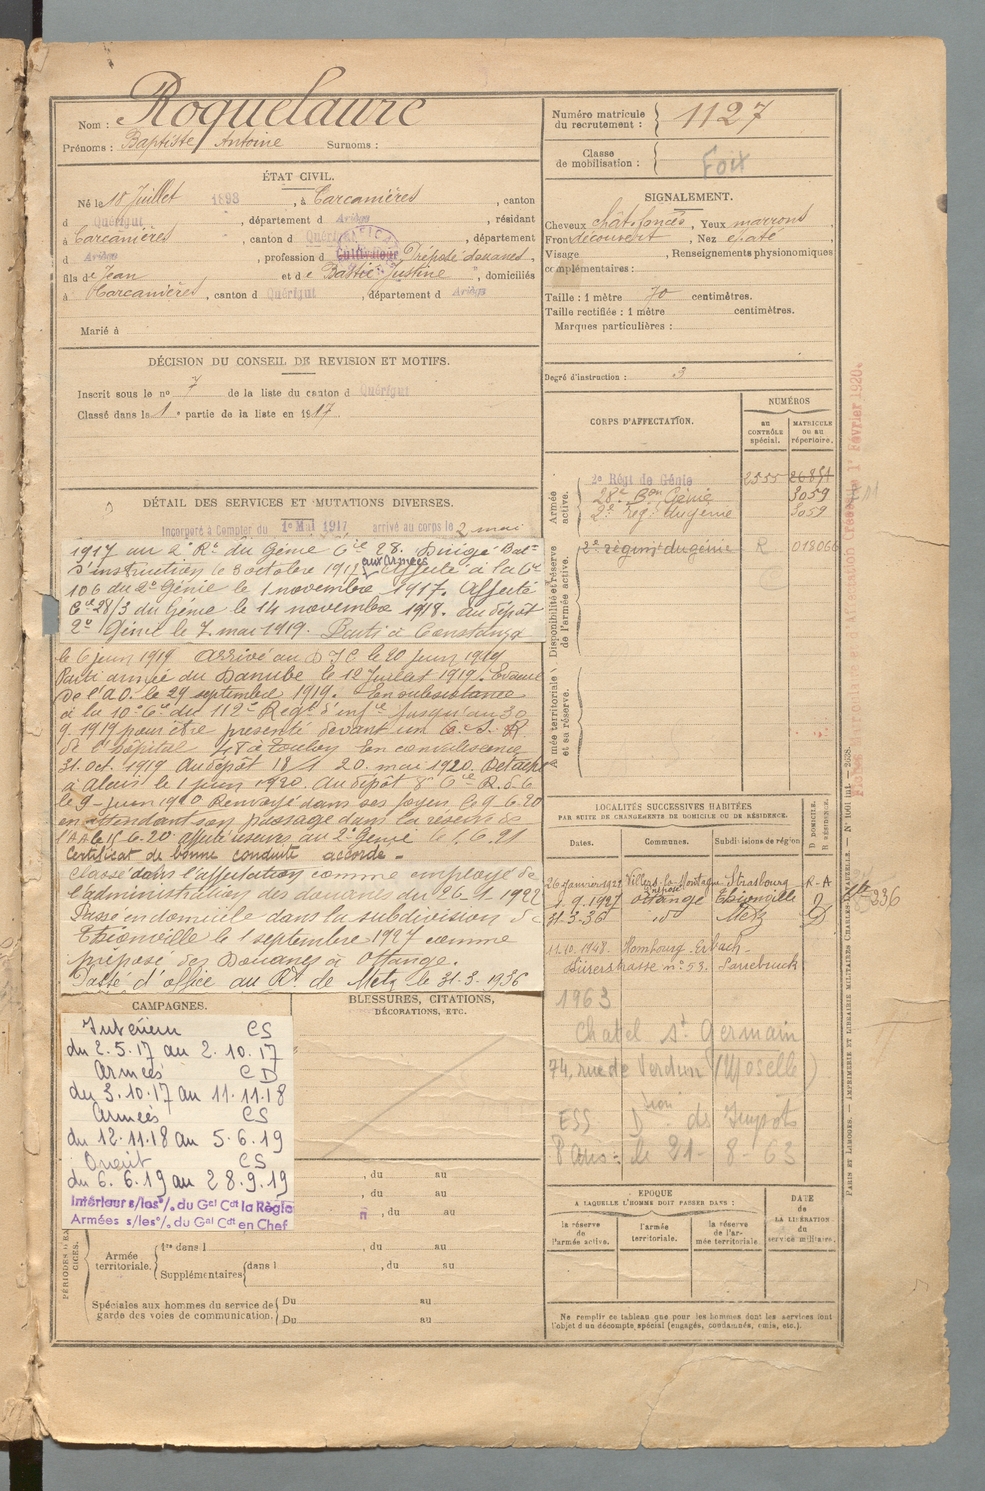 Nom : Roquelaure
Prénoms : Baptiste Antoine Surnoms :
ÉTAT CIVIL.
Né le 18 Juillet 1898, à Carcanières, canton
d Quérigut, département d Ariège, résidant
à Carcanières, canton d Quérigut, département
d Ariège, profession d Cultivateur Préposé douanes,
fils de Jean et de Justine, domiciliés
à Carcanières, canton d Quérigut, département d Ariège
Marié à
DÉCISION DU CONSEIL DE REVISION ET MOTIFS.
Inscrit sous le no 7 de la liste du canton d Quérigut
Classé dans la 1e partie de la liste en 1917.
DÉTAIL DES SERVICES ET MUTATIONS DIVERSES.
Incorporé à Compter du 1er Mai 1917 arrivé au corps le 2 mai
1917 au 2e Rt du Génie Cie 28. Dirigé Batn
d'instruction le 3 octobre 1917 aux Armées. Affecté à la Cie
106 du 2e Génie le 1 novembre 1917. Affecté
Cie 28/3 du Génie le 14 novembre 1918. au dépôt
2e Génie le 7 mai 1919. Parti à Constanza
le 6 juin 1919 arrivé au D I C le 20 juin 1919
Parti armée du Danube le 12 Juillet 1919. Evacué
de l'A.D. le 29 septembre 1919. En subsistance
à la 10e Cie du 112e Regt d'infie jusqu'au 30
9.1919 pour être présenté devant un C. S. R.
de l'hôpital 48 à Toulon En convalescence
31. oct. 1919 Au dépôt 18 1 20. mai 1920. Détaché
à Alais le 1 juin 1920. Au dépôt 8e Cie R.d.G
le 9 juin 1920 Renvoyé dans ses foyers le 9-6-20
en attendant son passage dans la réserve de
l'A A le 15.6.20. affecté au 2e Génie le 1.6.21
Certificat de bonne conduite accordé -
Classé dans l'affectation comme employé de
l'administration des douanes du 26-1-1922
Passé en domicile dans la subdivision de
Thionville le 1 septembre 1927 comme
préposé des Douanes à Ottange.
Passé d'office au Rt de Metz le 31.3.1936
CAMPAGNES.
Intérieur CS
du 2.5.17 au 2.10.17
Armées CD
du 3.10.17 au 11.11.18
Armées CS
du 12.11.18 au 5.6.19
Orient CS
du 6.6.19 au 28.9.19
Intérieur s/les%. du Gal Cdt la Régio
Armées s/les%. du Gal Cdt en Chef
BLESSURES, CITATIONS,
DÉCORATIONS, ETC.
, du au
, du au
, du au
Armée territoriale. 1re dans l , du au
Supplémentaires dans l , du au
Spéciales aux hommes du service de garde des voies de communication. Du au
Du au
Numéro matricule du recrutement : 1127
Classe de mobilisation : Foix
SIGNALEMENT.
Cheveux chât. foncés, Yeux marrons
Front découvert, Nez épaté
Visage , Renseignements physionomiques
complémentaires :
Taille : 1 mètre 70 centimètres.
Taille rectifiée : 1 mètre centimètres.
Marques particulières :
Degré d'instruction : 3
CORPS D'AFFECTATION.
NUMÉROS
au CONTRÔLE spécial.
MATRICULE ou au répertoire.
Armée active.
2e Régt de Génie 2355 26851
28e Bon Génie 3059
2e reg. du génie 3059
Disponibilité et réserve de l'armée active.
2e régimt du génie R 019066
Armée territoriale et sa réserve.
LOCALITÉS SUCCESSIVES HABITÉES
PAR SUITE DE CHANGEMENTS DE DOMICILE OU DE RÉSIDENCE.
Dates. Communes. Subdivisions de région
D DOMICILE. R RÉSIDENCE.
26 janvier 1921 Villers-la-Montagne Strasbourg R-A
1.9.1927 Ottange Thionville D
31-3-36 id Metz D
11.10.1948. Hombourg-Erbach-
strasse no 53. Sarrebruck
1963
Chatel St Germain
74, rue de Verdun (Moselle)
ESS Dtion des Impôts
Paris : le 21-8-63
ÉPOQUE
A LAQUELLE L'HOMME DOIT PASSER DANS :
la réserve de l'armée active.
l'armée territoriale.
la réserve de l'armée territoriale.
DATE DE LA LIBÉRATION du service militaire.
Ne remplir ce tableau que pour les hommes dont les services font
l'objet d'un décompte spécial (engagés, condamnés, omis, etc.).
PARIS ET LIMOGES. — IMPRIMERIE ET LIBRAIRIE MILITAIRES CHARLES-LAVAUZELLE. — No 1661 int. — 2638.
Fiches Matriculaire et d'Affectation Créées le 1er Février 1920.
336